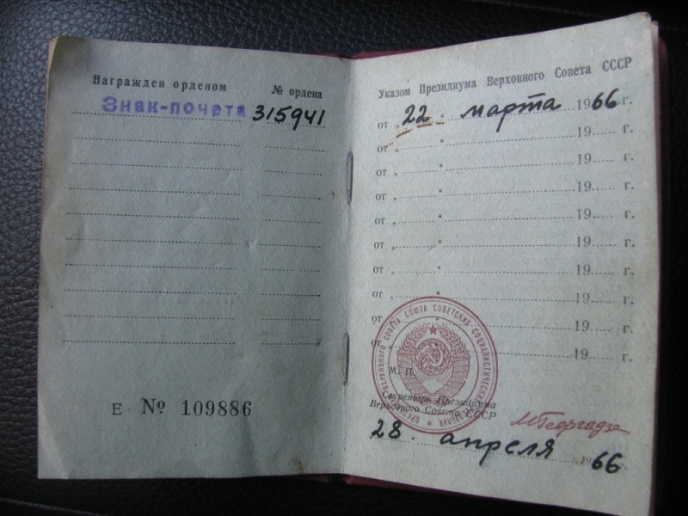 Награжден орденом № ордена
Знак-почета 315941
Е № 109886
Указом Президиума Верховного Совета СССР
от „ 22 " марта 1966 г.
от „ " 19 г.
от „ " 19 г.
от „ " 19 г.
от „ " 19 г.
от „ " 19 г.
от „ " 19 г.
от „ " 19 г.
от „ " 19 г.
от „ " 19 г.
М. П.
Секретарь Президиума
Верховного Совета СССР
МГеоргадзе
28 апреля 1966